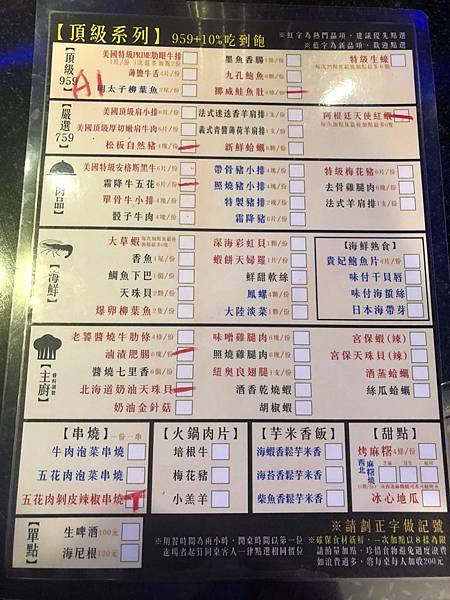 【頂級系列】 959+10%吃到飽
※紅字為熱門品項，建議優先點選
※藍字為新品項，歡迎點選
頂級959
A1
美國特級PRIME肋眼牛排
1片/份
薄鹽牛舌4片/份
明太子柳葉魚2尾/份
墨魚香腸
九孔鮑魚
挪威鮭魚肚
特級生蠔
嚴選759
美國頂級肩小排
美國頂級厚切嫩肩牛肉
松板自然豬
法式迷迭香羊肩排
義式青醬薄荷羊肩排
新鮮蛤蠣
阿根廷天使紅蝦
肉品
美國特級安格斯黑牛6片/份
霜降牛五花6片/份
單骨牛小排4塊/份
骰子牛肉4塊/份
帶骨豬小排
照燒豬小排
特製豬排
霜降豬
特級梅花豬6片/份
去骨雞腿肉
法式羊肩排
海鮮
大草蝦
香魚1尾/份
鯛魚下巴1個/份
天珠貝2個/份
爆卵柳葉魚2隻/份
深海彩虹貝1顆/份
蝦餅天婦羅1片/份
鮮甜軟絲
鳳螺4顆/份
大陸淡菜1顆/份
【海鮮熟食】
貴妃鮑魚片3片/份
味付干貝唇
味付海蜇絲
日本海帶芽
主廚
老饕醬燒牛肋條4條/份
滷漬肥腸6塊/份
醬燒七里香6個/份
北海道奶油天珠貝
奶油金針菇
味噌雞腿肉6塊/份
照燒雞腿肉6塊/份
紐奧良翅腿1支/份
酒香乾燒蝦
胡椒蝦
宮保蝦(辣)
宮保天珠貝(辣)
酒蒸蛤蠣
絲瓜蛤蠣
【串燒】一份一串
牛肉泡菜串燒
五花肉泡菜串燒
五花肉剝皮辣椒串燒
【火鍋肉片】
培根牛
梅花豬
小羔羊
【芋米香飯】
海蝦香鬆芋米香
海苔香鬆芋米香
柴魚香鬆芋米香
【甜點】
烤麻糬4條/份
西北麻糬燒
冰心地瓜
單點
生啤酒100元
海尼根120元
※請劃正字做記號
※用餐時間為兩小時，開桌時間以第一位
進場者起算同桌客人一律點選相同價位
※確保食材新鮮，一次加點以8樣為限
請酌量加點，珍惜食物避免過度浪費
如浪費過多，需每桌每人加收200元